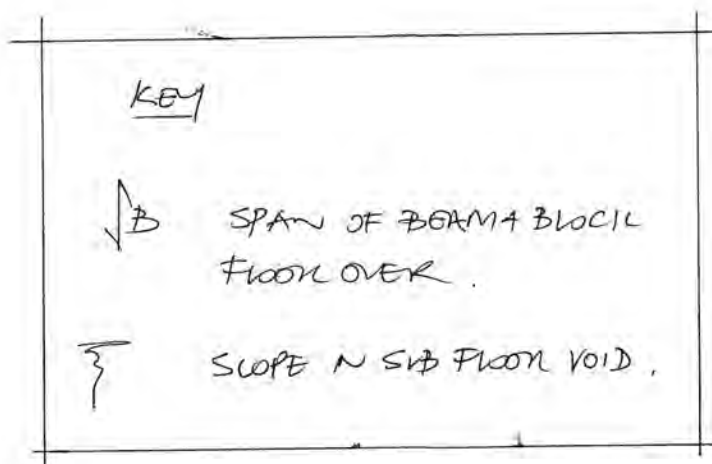 KEY
B SPAN OF BEAM & BLOCK
FLOOR OVER.
SLOPE IN SUB FLOOR VOID.